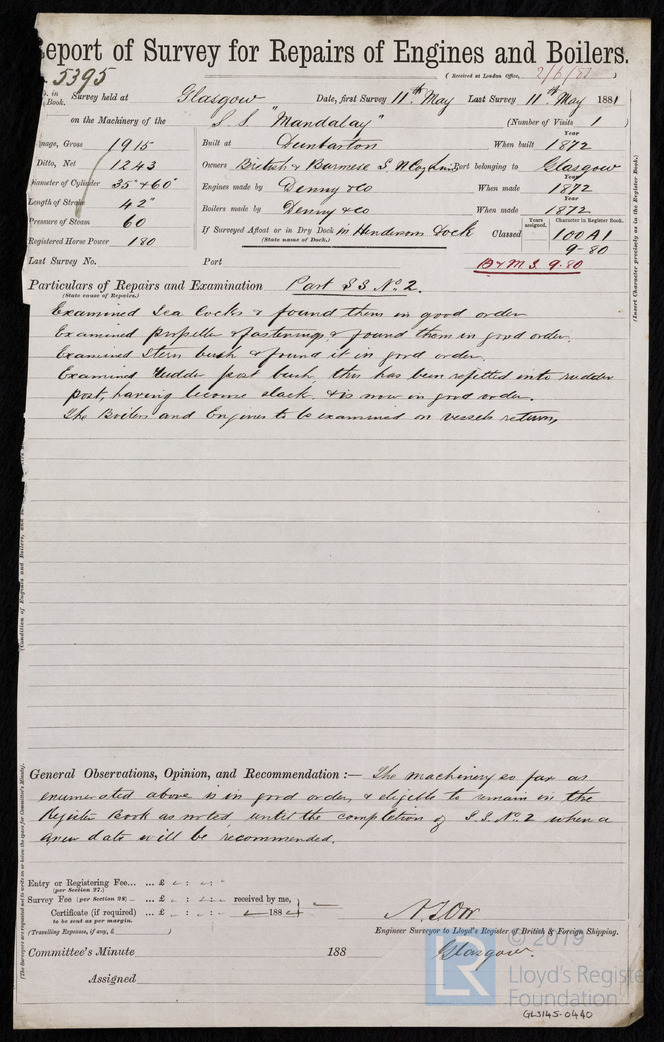 eport of Survey for Repairs of Engines and Boilers.
5395
(Received at London Office, 2/6/81)
in Book. Survey held at Glasgow Date, first Survey 11th May Last Survey 11th May 1881
on the Machinery of the S.S "Mandalay" (Number of Visits 1 )
nage, Gross 1915 Built at Dunbarton When built Year 1872
Ditto, Net 1243 Owners British & Burmese S. N. Coy Port belonging to Glasgow
iameter of Cylinder 35" & 60" Engines made by Denny & Co When made Year 1872
Length of Stroke 42" Boilers made by Denny & Co When made Year 1872
Pressure of Steam 60 If Surveyed Afloat or in Dry Dock in Hendersons Dock Classed Years assigned. Character in Register Book. 100 A1
(State name of Dock.) 9-80
Registered Horse Power 180
Last Survey No. Port B&M S. 9.80
Particulars of Repairs and Examination Part S S No. 2.
(State cause of Repairs.)
Examined Sea Cocks & found them in good order
Examined propeller & fastenings, & found them in good order.
Examined Stern bush & found it in good order.
Examined rudder post bush this has been refitted into rudder
post, having become slack. & is now in good order.
The Boilers and Engines to be examined on vessels return,
General Observations, Opinion, and Recommendation :— The machinery so far as
enumerated above is in good order, & eligible to remain in the
Register Book as noted, until the completion of S.S. No. 2 when a
new date will be recommended.
Entry or Registering Fee... ... £
(per Section 27.)
Survey Fee (per Section 28) ... ... £ received by me,
Certificate (if required) ... £ 188
to be sent as per margin.
(Travelling Expenses, if any, £ )
Engineer Surveyor to Lloyd's Register of British & Foreign Shipping.
Glasgow.
Committee's Minute 188
Assigned
(Insert Character precisely as in the Register Book.)
(The Surveyors are requested not to write on or below the space for Committee's Minute.)
LR © 2019
Lloyd's Register
Foundation
GLS145-0440